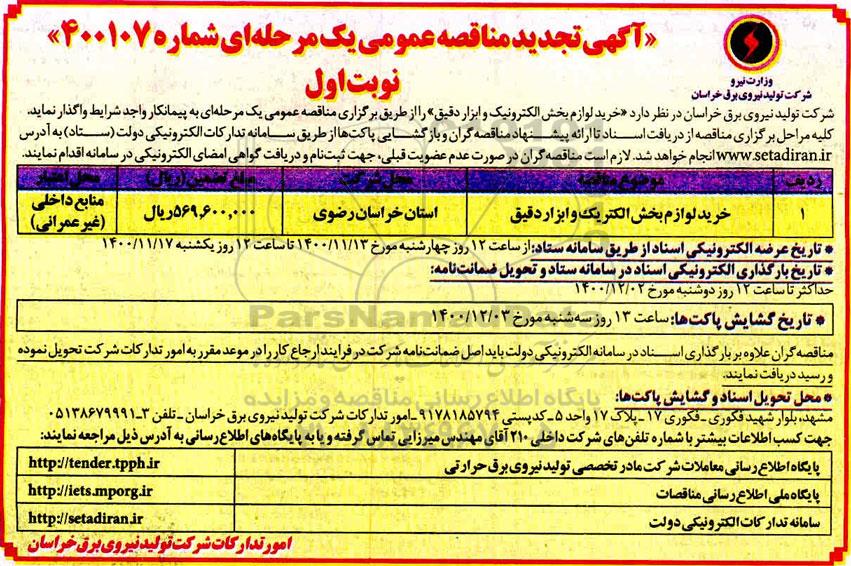 «آگهی تجدید مناقصه عمومی یک مرحله‌ای شماره ۴۰۰۱۰۷»
نوبت اول
وزارت نیرو
شرکت تولید نیروی برق خراسان
شرکت تولید نیروی برق خراسان در نظر دارد «خرید لوازم بخش الکترونیک و ابزار دقیق» را از طریق برگزاری مناقصه عمومی یک مرحله‌ای به پیمانکار واجد شرایط واگذار نماید.
کلیه مراحل برگزاری مناقصه از دریافت اسناد تا ارائه پیشنهاد مناقصه‌گران و بازگشایی پاکت‌ها از طریق سامانه تدارکات الکترونیکی دولت (ستاد) به آدرس
www.setadiran.ir انجام خواهد شد. لازم است مناقصه‌گران در صورت عدم عضویت قبلی، جهت ثبت‌نام و دریافت گواهی امضای الکترونیکی در سامانه اقدام نمایند.
ردیف موضوع مناقصه محل شرکت مبلغ تضمین (ریال) محل اعتبار
۱ خرید لوازم بخش الکتریک و ابزار دقیق استان خراسان رضوی ۵۶۹,۶۰۰,۰۰۰ ریال منابع داخلی
(غیر عمرانی)
* تاریخ عرضه الکترونیکی اسناد از طریق سامانه ستاد: از ساعت ۱۲ روز چهارشنبه مورخ ۱۴۰۰/۱۱/۱۳ تا ساعت ۱۲ روز یکشنبه ۱۴۰۰/۱۱/۱۷
* تاریخ بارگذاری الکترونیکی اسناد در سامانه ستاد و تحویل ضمانت‌نامه:
حداکثر تا ساعت ۱۲ روز دوشنبه مورخ ۱۴۰۰/۱۲/۰۲
* تاریخ گشایش پاکت‌ها: ساعت ۱۳ روز سه‌شنبه مورخ ۱۴۰۰/۱۲/۰۳
ParsNamadData
مناقصه‌گران علاوه بر بارگذاری اسناد در سامانه الکترونیکی دولت باید اصل ضمانت‌نامه شرکت در فرایند ارجاع کار را در موعد مقرر به امور تدارکات شرکت تحویل نموده
و رسید دریافت نمایند.
پایگاه اطلاع رسانی مناقصه و مزایده
* محل تحویل اسناد و گشایش پاکت‌ها:
مشهد، بلوار شهید فکوری - فکوری ۱۷ - پلاک ۱۷ واحد ۵ - کدپستی ۹۱۷۸۱۸۵۷۹۴ - امور تدارکات شرکت تولید نیروی برق خراسان - تلفن ۳-۰۵۱۳۸۶۷۹۹۹۱
جهت کسب اطلاعات بیشتر با شماره تلفن‌های شرکت داخلی ۲۱۰ آقای مهندس میرزایی تماس گرفته و یا به پایگاه‌های اطلاع رسانی به آدرس ذیل مراجعه نمایند:
پایگاه اطلاع رسانی معاملات شرکت مادر تخصصی تولید نیروی برق حرارتی http://tender.tpph.ir
پایگاه ملی اطلاع رسانی مناقصات http://iets.mporg.ir
سامانه تدارکات الکترونیکی دولت http://setadiran.ir
امور تدارکات شرکت تولید نیروی برق خراسان